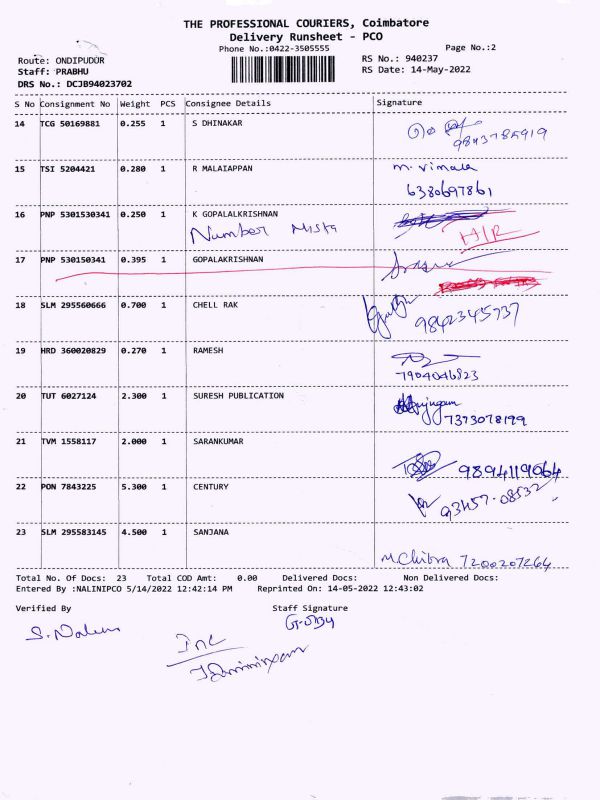 THE PROFESSIONAL COURIERS, Coimbatore
Delivery Runsheet - PCO
Phone No.:0422-3505555
Page No.:2
Route: ONDIPUDUR
RS No.: 940237
Staff: PRABHU
RS Date: 14-May-2022
DRS No.: DCJB94023702
S No Consignment No Weight PCS Consignee Details Signature
14 TCG 50169881 0.255 1 S DHINAKAR
9843785919
15 TSI 5204421 0.280 1 R MALAIAPPAN M. Vimala
6380697861
16 PNP 5301530341 0.250 1 K GOPALALKRISHNAN
Number Mista
17 PNP 530150341 0.395 1 GOPALAKRISHNAN
18 SLM 295560666 0.700 1 CHELL RAK
9842345737
19 HRD 360020829 0.270 1 RAMESH
7904046823
20 TUT 6027124 2.300 1 SURESH PUBLICATION
7373078199
21 TVM 1558117 2.000 1 SARANKUMAR
9894119064
22 PON 7843225 5.300 1 CENTURY
93457-08532
23 SLM 295583145 4.500 1 SANJANA
M.Chitra 7200207264
Total No. Of Docs: 23 Total COD Amt: 0.00 Delivered Docs: Non Delivered Docs:
Entered By :NALINIPCO 5/14/2022 12:42:14 PM Reprinted On: 14-05-2022 12:43:02
Verified By Staff Signature